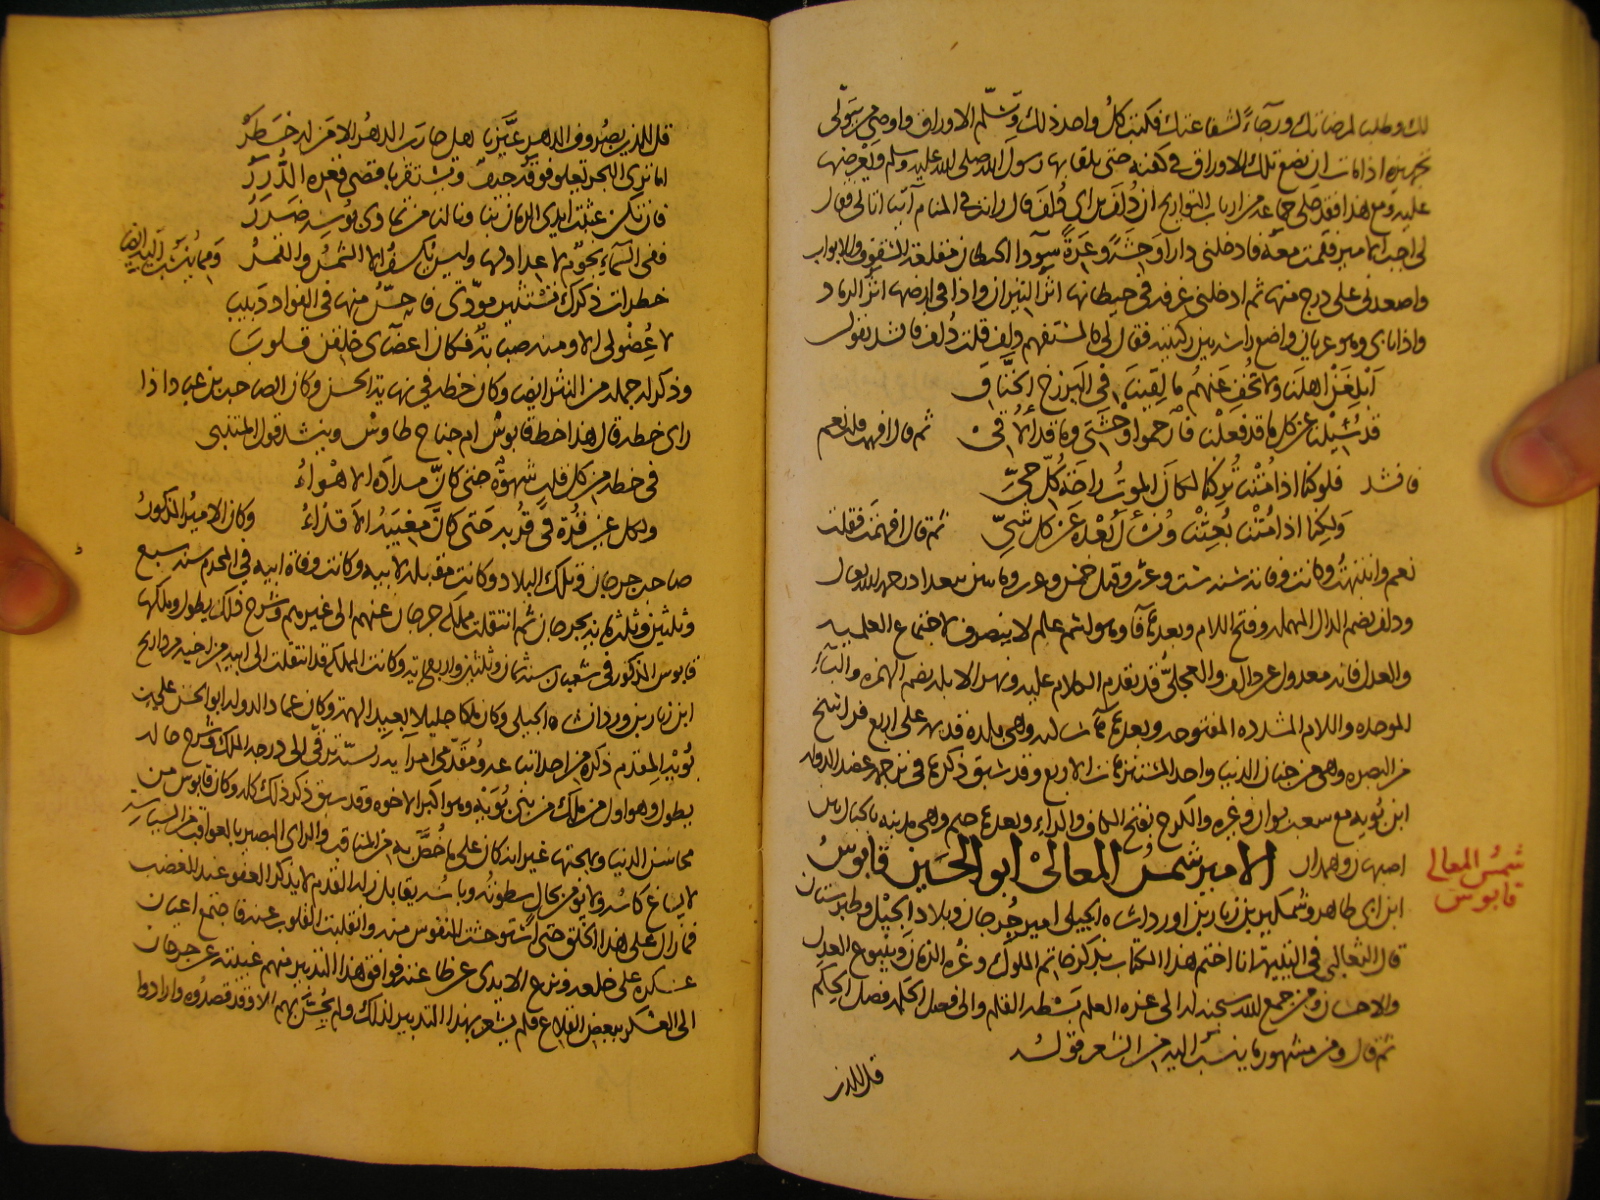 لك وطلبا لمرضاتك ورجاء لشفاعتك فكتب كل واحد ذلك وتسلم الاوراق واوصى من يتولى
تجهيزه اذا مات ان يضع تلك الاوراق في كفنه حتى يلقى بها رسول الله صلى الله عليه وسلم ويعرضها
عليه ومع هذا فقد حكى جماعة من ارباب التواريخ ان دلف بن ابي دلف قال رايت في المنام آتيا اتاني فقال
لي اجب الامير فقمت معه فادخلني دارا وحشة وعرة سودا الحيطان مقلعة السقوف والابواب
واصعدني على درج منها ثم ادخلني غرفة في حيطانها اثر النيران واذا في ارضها اثر الرماد
واذا بابي وهو عريان واضع راسه بين ركبتيه فقال لي كالمستفهم دلف قلت دلف فانشد يقول
ابلغن اهلنا ولا تخف عنهم ما لقينا في البرزخ الخناق
قد سئلنا عن كل ما قد فعلنا فارحموا وحشتي وما قد الاقي ثم قال افهمت قلت نعم
فانشد فلو كنا اذا متنا تركنا لكان الموت راحة كل حي
ولكنا اذا متنا بعثنا ونسأل بعده عن كل شي ثم قال افهمت فقلت
نعم وانتبهت وكانت وفاته سنه ست وعشرين وقيل خمس وعشرين وماتين ببغداد رحمه الله تعالى
ودلف بضم الدال المهمله وفتح اللام وبعدها فا وهو اسم علم لا ينصرف لاجتماع العلمية
والعدل فانه معدول عن دالف والعجلي قد تقدم الكلام عليه ونهر الابله بضم الهمزه والباء
الموحده واللام المشدده المفتوحه وبعدها ها ساكنه وهي بلدة قديمة على اربع فراسخ
من البصره وهي من جنان الدنيا واحد المنتزهات الاربع وقد سبق ذكرها في ترجمه عضد الدوله
ابن بويه مع شعب بوان وغيره والكرج بفتح الكاف والراء وبعدها جيم وهي مدينه بالجبل بين
اصبهان وهمدان الامير شمس المعالي ابو الحسين قابوس
شمس المعالي
قابوس
ابن ابي طاهر وشمكير بن زيار بن وردانشاه الجيلي امير جرجان وبلاد الجيل وطبرستان
قال الثعالبي في اليتيمة انا اختم هذا الكتاب بذكر خاتم الملوك وغرة الزمان وينبوع العدل
والاحسان ومن جمع الله سبحنه له الى عزه العلم بسطه القلم والى فصل الحكمه فصل الحكم
ثم قال ومن مشهور ما ينسب اليه من الشعر قوله
قل للذي
قل للذي بصروف الدهر عيرنا هل حارب الدهر الا من له خطر
اما ترى البحر تعلو فوقه جيف وتستقر باقصى قعره الدرر
فان تكن عبثت ايدي الزمان بنا ونالنا من تمادى بوسه ضرر
ففي السماء نجوم لا عداد لها وليس يكسف الا الشمس والقمر ومما ينسب اليه ايضا
خطرات ذكرك تستثير مودتي فاحس منها في الفواد دبيب
لا عضو لي الا وفيه صبابة فكان اعضاي خلقن قلوبا
وذكر له جملة من النثر ايضا وكان خطه في نهاية الحسن وكان الصاحب بن عباد اذا
راى خطه قال هذا خط قابوس ام جناح طاوس وينشد قول المتنبي
في خطه من كل قلب شهوة حتى كان مداده الاهواء
ولكل عين قرة في قربه حتى كان مغيبه الاقذاء وكان الامير المذكور
صاحب جرجان وتلك البلاد وكانت من قبله لابيه وكانت وفاة ابيه في المحرم سنه سبع
وثلثين وثلثمايه بجرجان ثم انتقلت مملكة جرجان عنهم الى غيرهم وشرح ذلك يطول وملكها
قابوس المذكور في شعبان سنه ثمان وثلثين واربعمايه وكانت المملكة قد انتقلت الى ابيه من اخيه مرداويج
ابن زيار بن وردانشاه الجيلي وكان ملكا جليلا بعيد الهمة وكان عماد الدولة ابو الحسن علي بن
بويه المقدم ذكره من احد اتباعه ومقدمي امرايه وبسببه ترقى الى درجه الملك وشرح حاله
يطول وهو اول من ملك من بني بويه وهو اكبر الاخوه وقد سبق ذكر ذلك كله وكان قابوس من
محاسن الدنيا وبهجتها غير انه كان على ما خص به من المناقب والراي البصير بالعواقب من السياسة
لا يساغ كاسه ولا يؤمن بحال سطوته وباسه يقابل زلة القدم لا يذكر العفو عند الغضب
فما زال على هذا الخلق حتى استوحشت النفوس منه وانقلبت القلوب عنه فاجمع اعيان
عسكره على خلعه ونزع الايدي عن طاعته فوافق هذا التدبير منهم غيبته عن جرجان
الى العسكر ببعض القلاع فلم يشعر بهذا التدبير لذلك ولم يحس بهم الا وقد قصدوه وارادوا